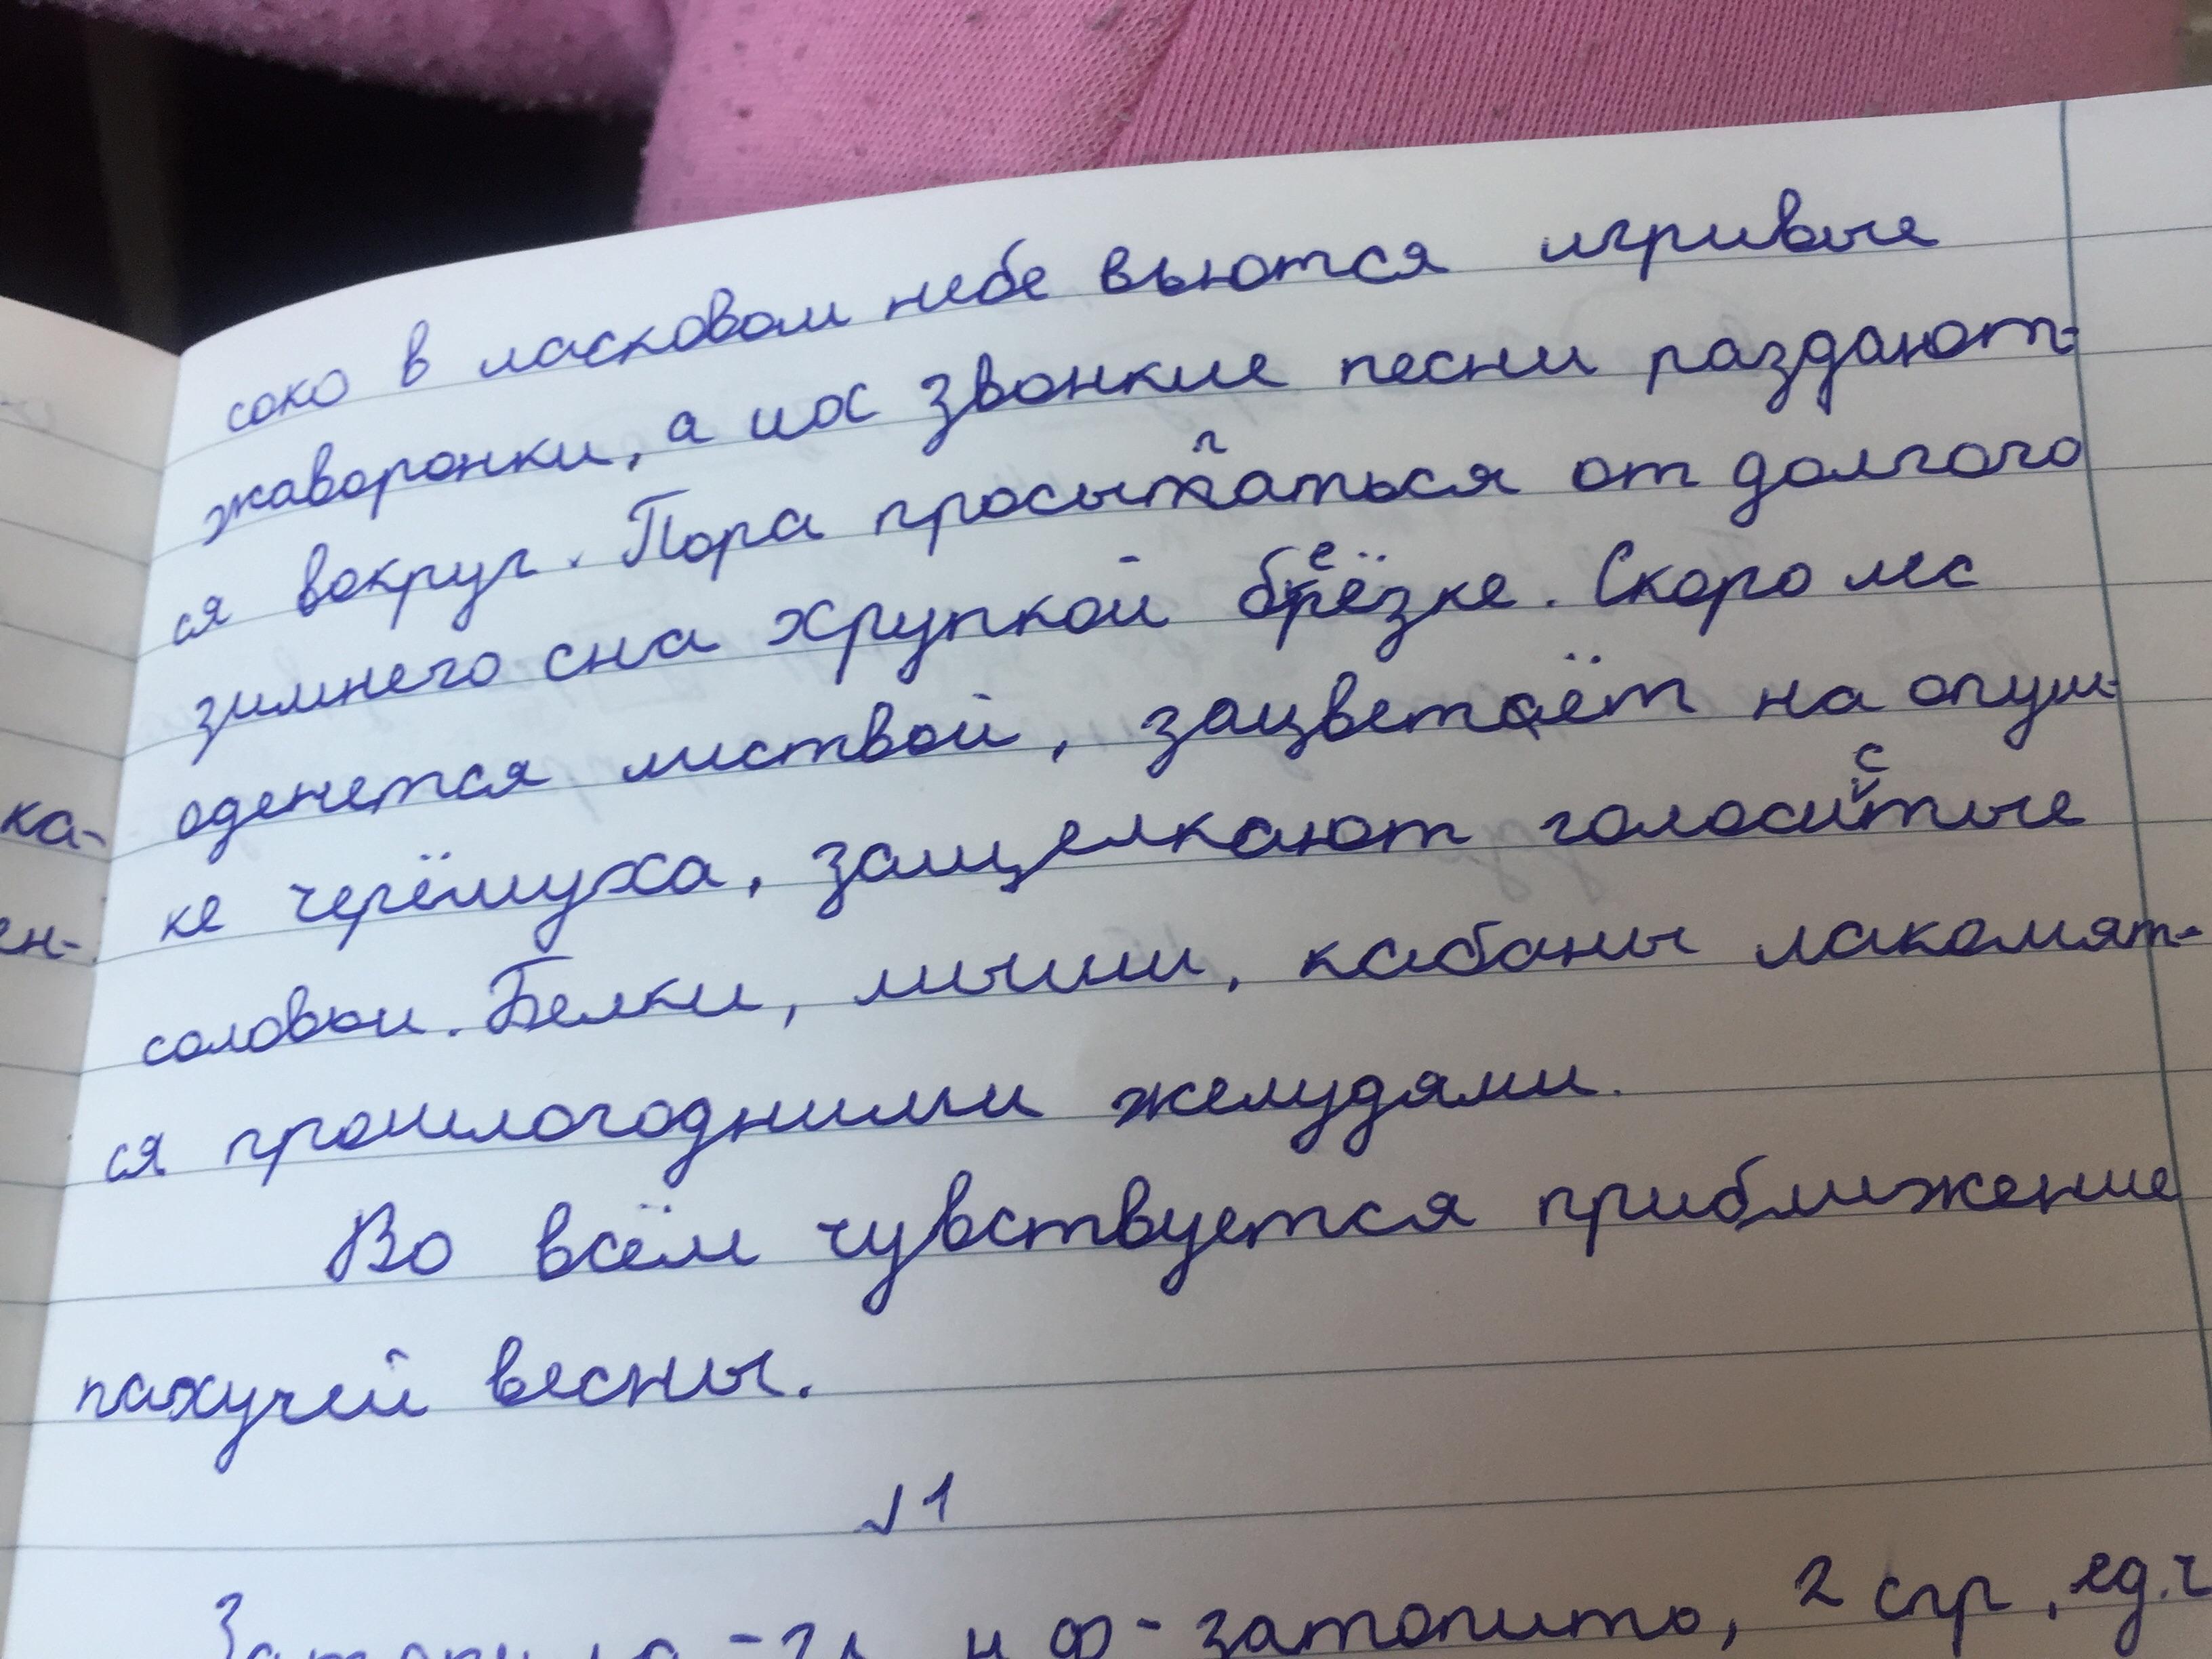 соко в ласковом небе вьются игривые
жаворонки, а иос звонкие песни раздают-
ся вокруг. Пора просыпаться от долгого
зимнего сна хрупкой берёзке. Скоро лес
оденется листвой, зацветёт на опуш-
ке черёмуха, защелкают голосистые
ка-
соловьи. Белки, мыши, кабаны лакомят-
ен-
ся прошлогодними желудями.
Во всём чувствуется приближение
пахучей весны.
√1
гл н ф - затопить, 2 спр, ед.ч